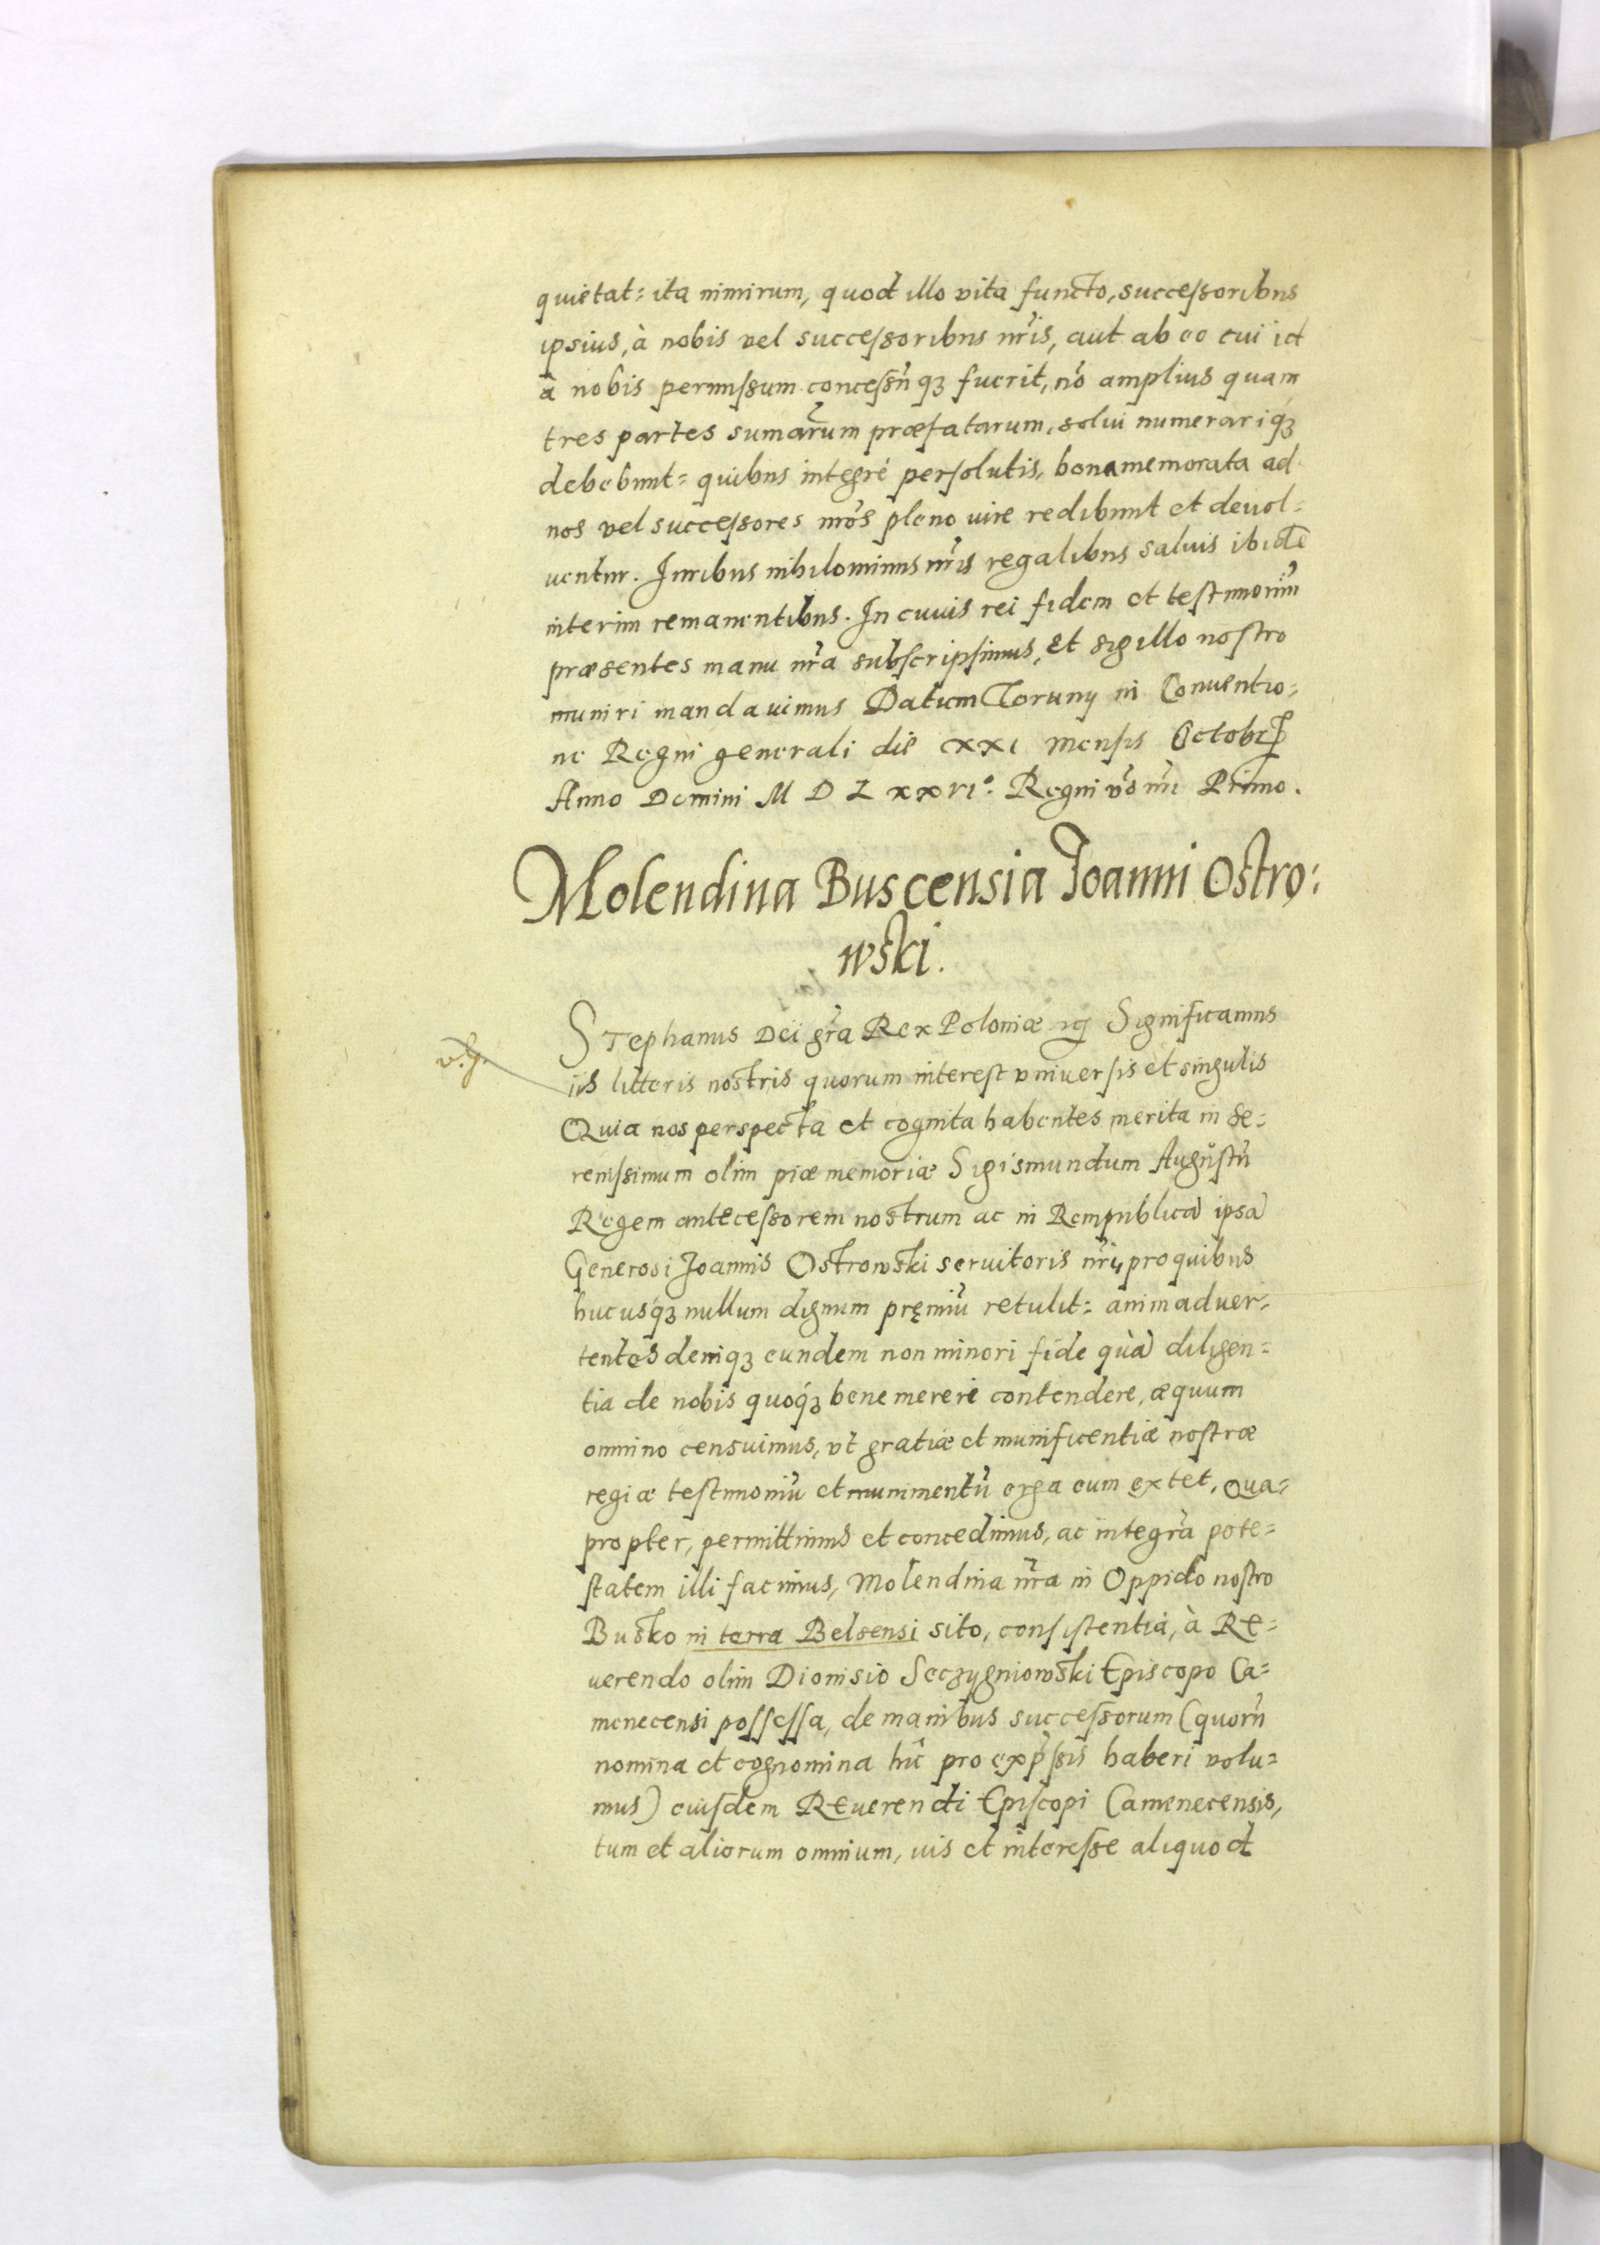 quietat: ita nimirum, quod illo vita functo, successoribus
ipsius, à nobis vel successoribus nr̃is, aut ab eo cui id
à nobis permissum concessũ qꝫ fuerit, nõ amplius quam
tres partes sumarum præfatarum, solui numerariqꝫ
debebunt: quibus integrè persolutis, bona memorata ad
nos vel successores nr̃os pleno iure redibunt et deuol-
uentur. Iuribus nihilominus nr̃is regalibus saluis ibidẽ
interim remanentibus. In cuius rei fidem et testimoniũ
præsentes manu nr̃a subscripsimus, et sigillo nostro
muniri mandauimus Datum Toruny in Conuentio-
ne Regni generali die xxi mensis Octobr̃
Anno Domini M D L xxvi°: Regni võ nr̃i Primo.
Molendina Buscensia Joanni Ostro:
wski.
STephanus Dei gr̃a Rex Poloniæ ꝛcͣ Significamus
v. g.
iis litteris nostris quorum interest vniuersis et singulis
Quia nos perspecta et cognita habentes merita in se-
renissimum olim piæ memoriæ Sigismundum Augustũ
Regem antecessorem nostrum ac in Rempublicã ipsã
Generosi Joannis Ostrowski seruitoris nr̃i, pro quibus
hucusqꝫ nullum dignum pręmiũ retulit: animaduer-
tentes deniqꝫ eundem non minori fide quã diligen-
tia de nobis quoqꝫ bene mereri contendere, æquum
omnino censuimus, vt gratiæ et munificentiæ nostræ
regiæ testimoniũ et munimentũ erga eum extet. Qua-
propter, permittimus et concedimus, ac integrã pote-
statem illi facimus, Molendina nr̃a in Oppido nostro
Busko in terra Belsensi sito, consistentia, à Re-
uerendo olim Dionisio Seczygniowski Episcopo Ca-
menecensi possessa, de manibus successorum (quorũ
nomina et cognomina hic pro exp̃ssis haberi volu-
mus) eiusdem Reuerendi Episcopi Camenecensis,
tum et aliorum omnium, ius et interesse aliquod